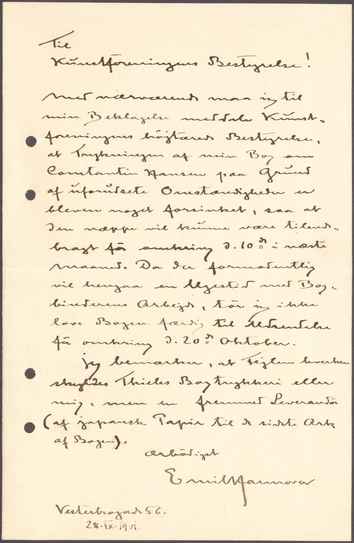 Til
Kunstforeningens Bestyrelse!
Med nærværende maa jeg til
min Beklagelse meddele Kunst-
foreningens højtærede Bestyrelse,
at Trykningen af min Bog om
Constantin Hansen paa Grund
af uforudsete Omstændigheder er
bleven noget forsinket, saa at
den næppe vil kunne være tilende-
bragt før omkring d. 10de i næste
Maaned. Da der formodentlig
vil hengaa en Ugestid med Bog-
binderens Arbejde, tör jeg ikke
love Bogen færdig til Udsendelse
før omkring d. 20de Oktober.
Jeg bemærker, at Fejlen hverken
skyldes Thieles Bogtrykkeri eller
mig, men en fremmed Leverandør
(af japansk Papir til de sidste Ark
af Bogen).
Ærbödigst
Emil Hannover
Vesterbrogade 56.
28-IX-1901.